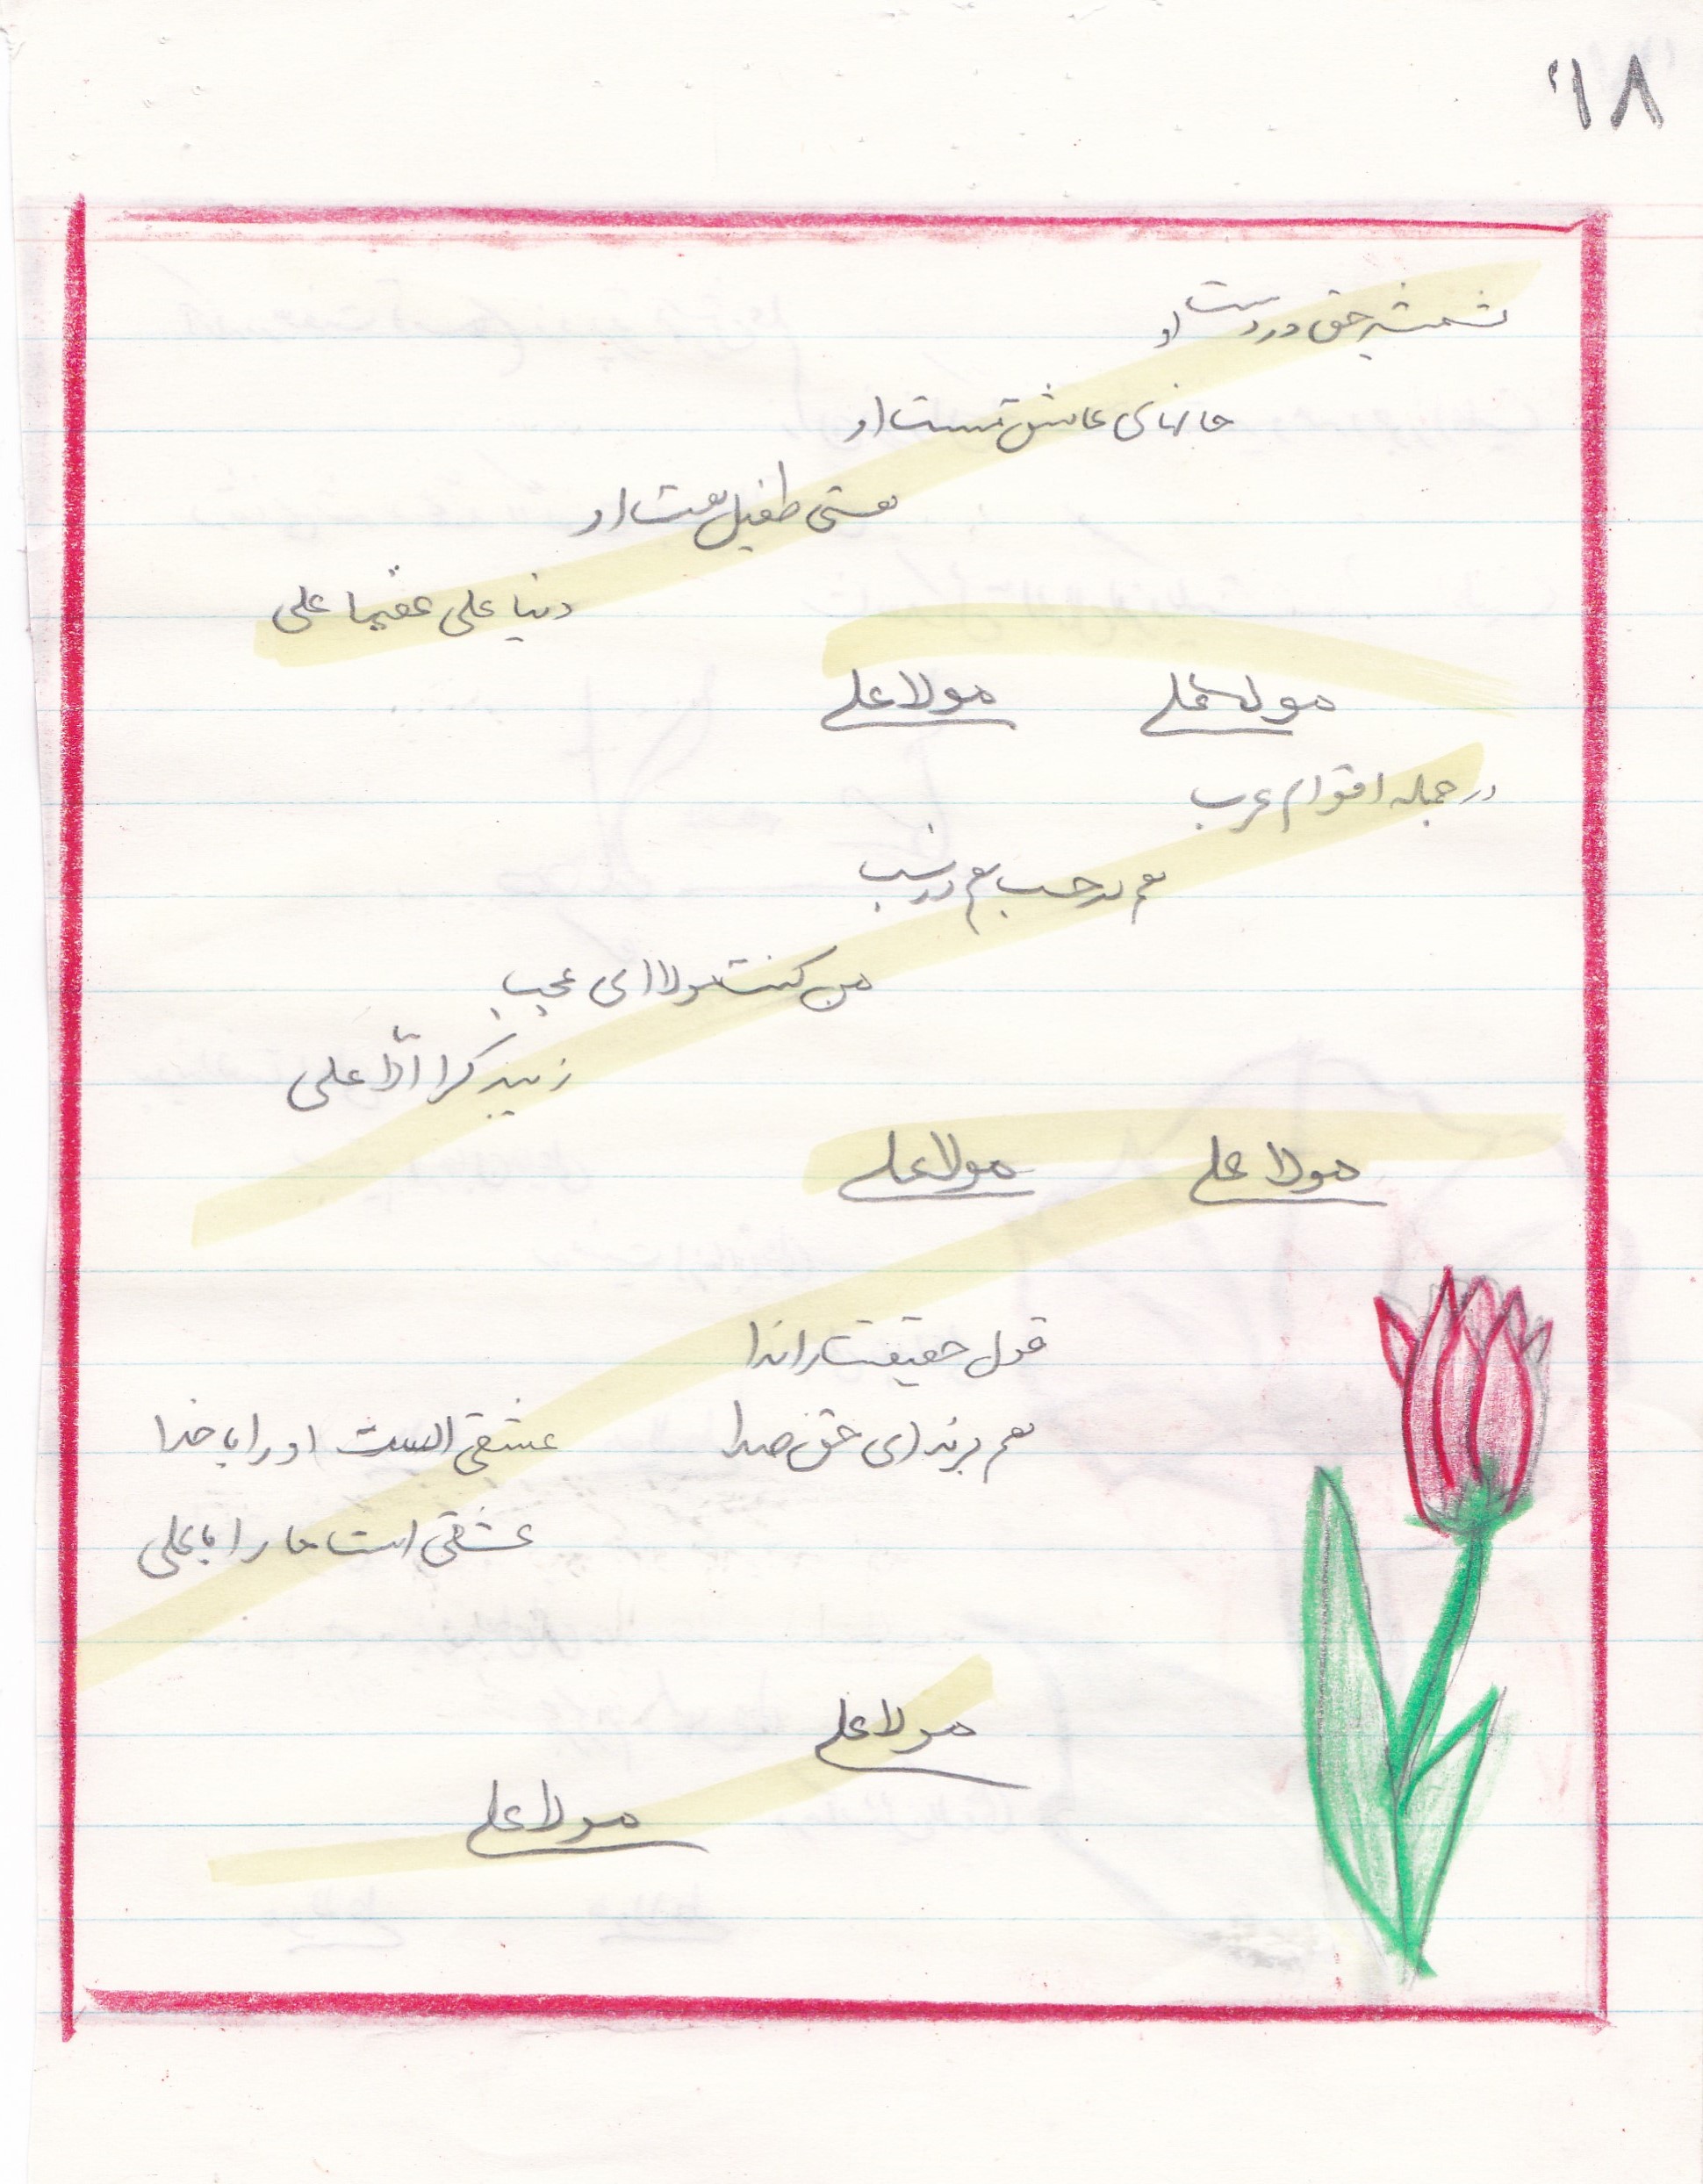 ۱۸
شمشیر حق در دست او
جانهای عاشق مست او
هستی طفیل هست او
دنیا علی عقبا علی
مولا علی مولا علی
در جمله اقوام عرب
هم در حسب هم در نسب
من کنت مولا ای عجب
زیبد کرا الا علی
مولا علی مولا علی
قول حقیقت را ندا
هم برندای حق صدا
عشقی الست او را با خدا
عشقی است ما را با علی
مولا علی
مولا علی